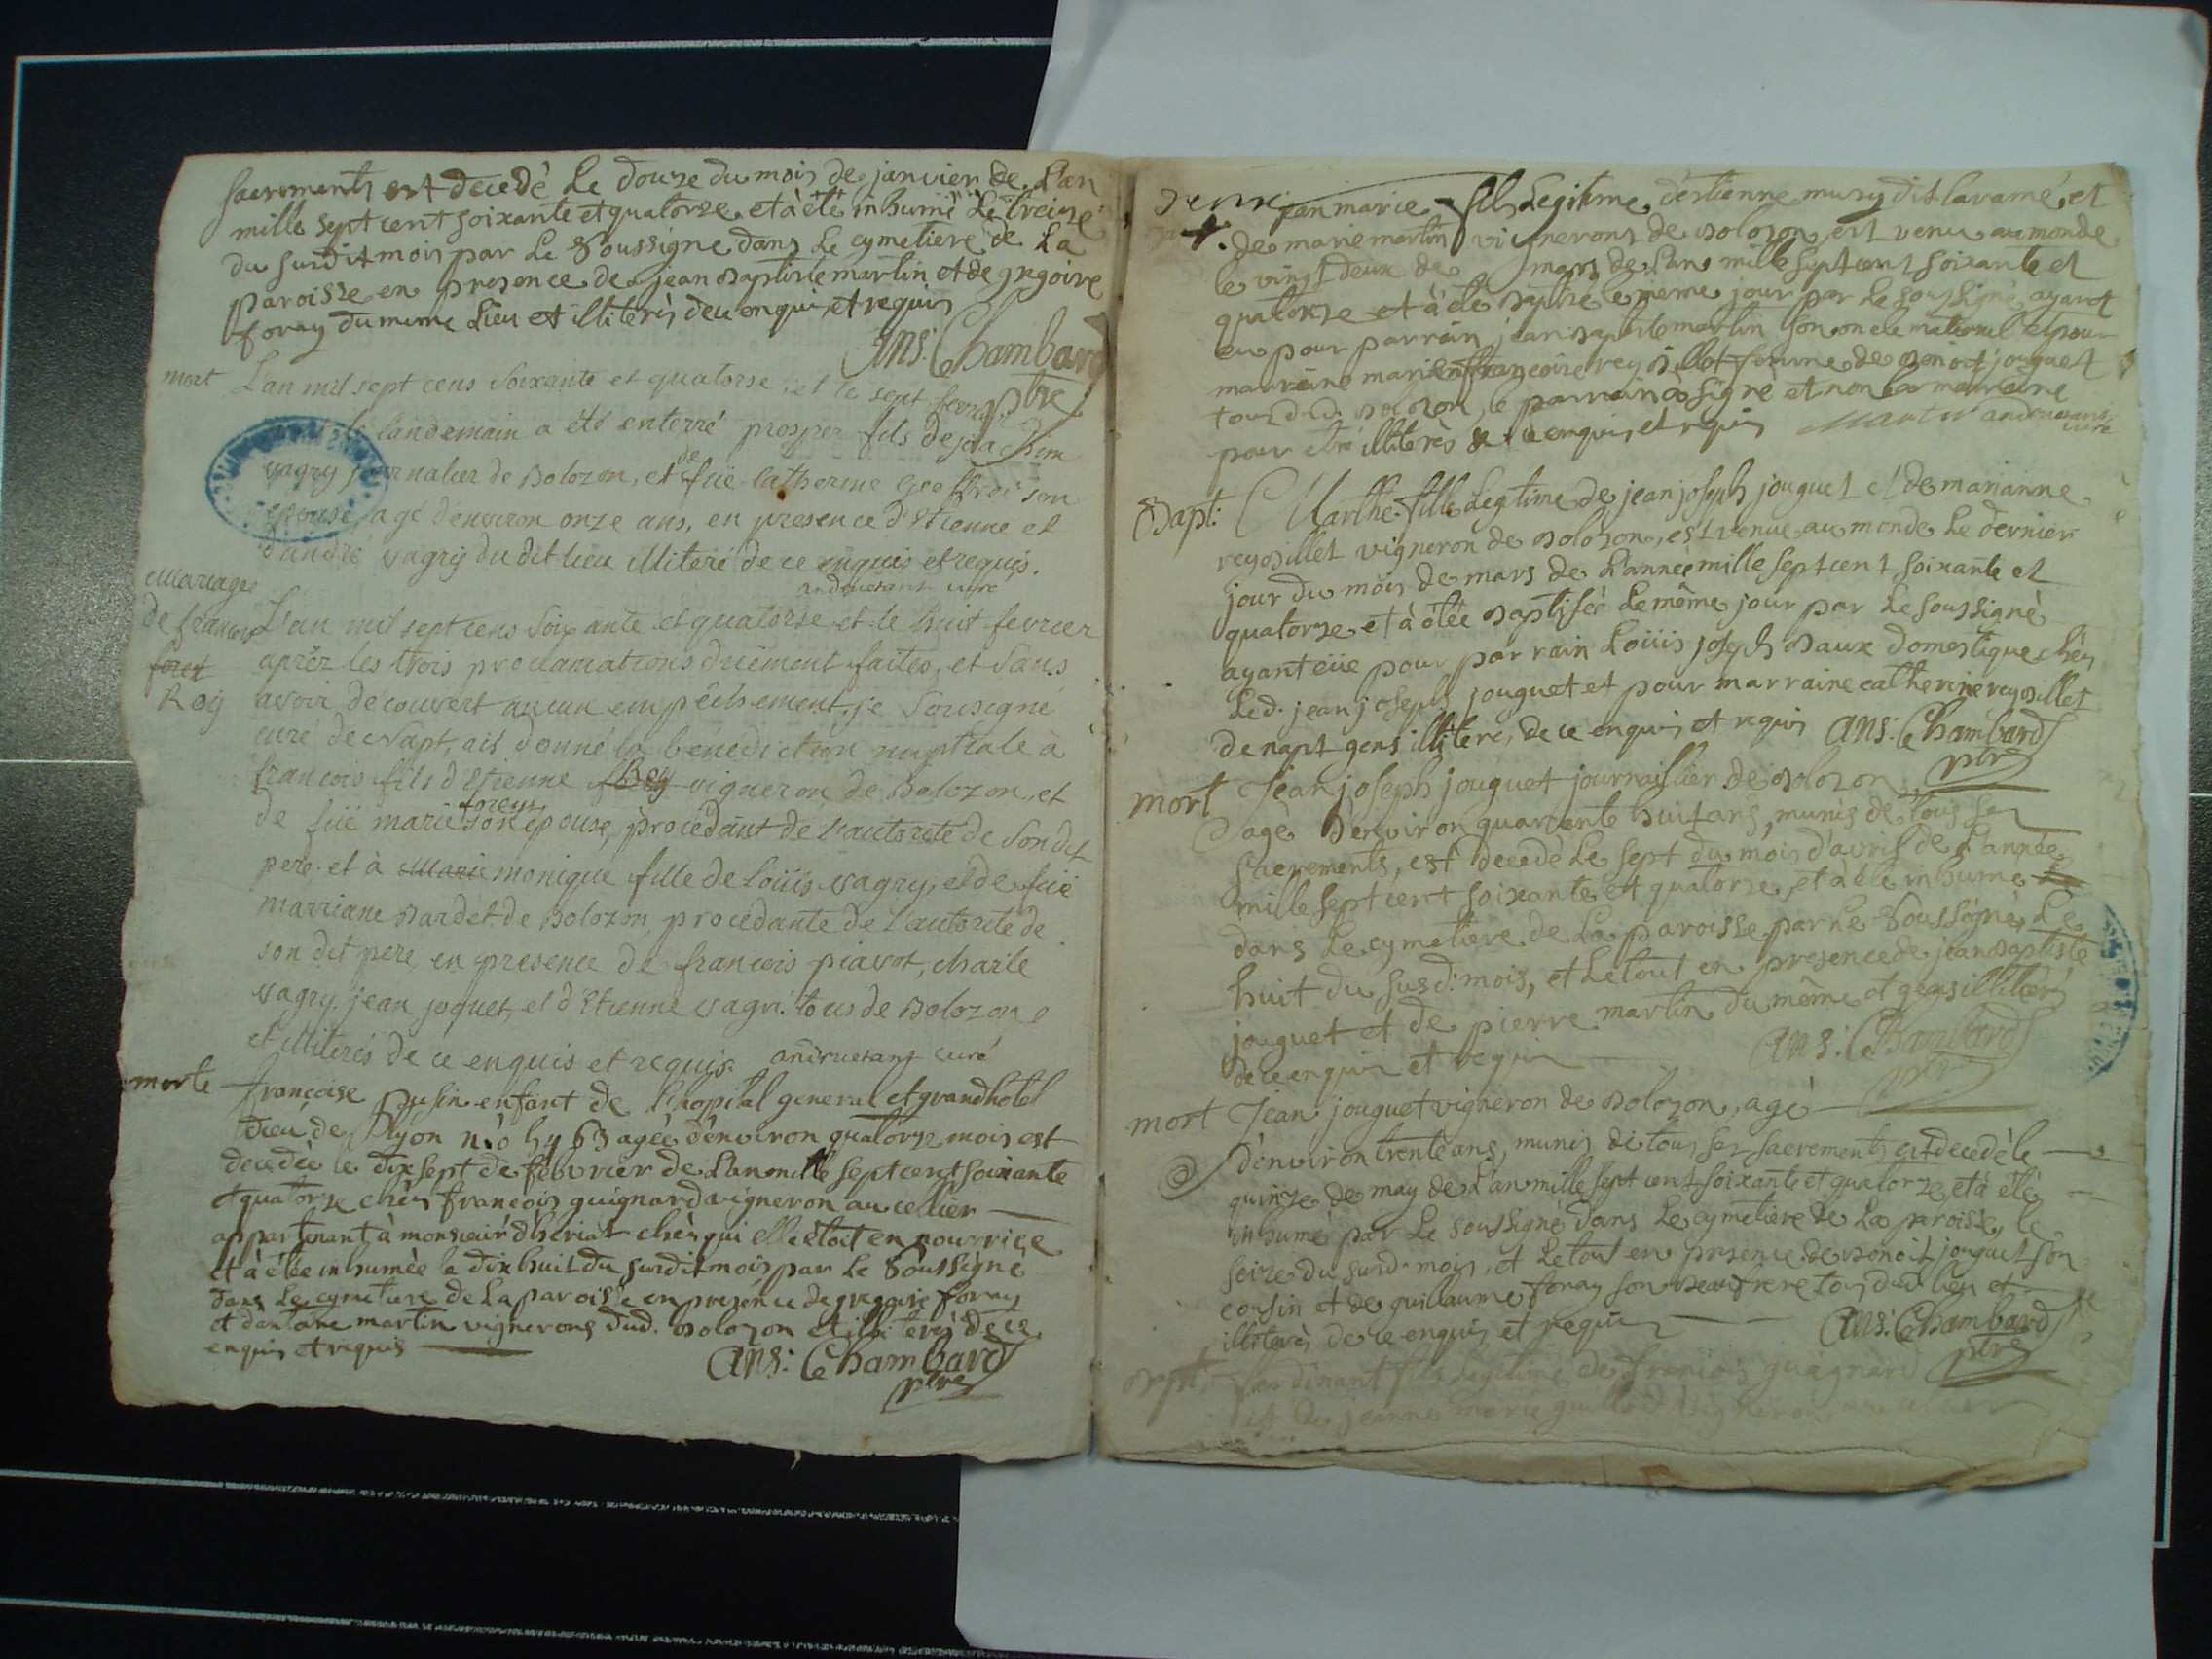 sacrements est decedè Le douze du mois de janvier de L'an
mille sept cent soixante et quatorze et à été inhumé Le treize
du susdit mois par Le Soussigné dans Le cymetiere de La
paroisse en presence de jean baptiste martin et de gregoire
foray du meme Lieu et illiterès de ce enquis et requis
Ans: Chambard
ptre
mort L'an mil sept cens soixante et quatorse et le sept fevrier
le landemain a été enterré prosper fils de joachim
vagry journalier de Bolozon, et de füe catherine geoffroi son
epouse, agé d'environ onze ans, en presence d'Etienne et
d'andré vagry du dit lieu illiteré de ce enquis et requis.
curé
Mariage
de francois
foret
Roy
L'an mil sept cens soixante et quatorse et le huit fevrier
aprèz les trois proclamations düement faites, et sans
avoir découvert aucun empêchement, je sousigné
curé de Napt, ais donné la bénédiction nuptiale à
francois fils d'Etienne Roy vigneron de Bolozon, et
de füe marie foreyt son epouse, procédant de l'autorité de son dit
pere. et à Marie monique fille de loüis vagry, et de füe
marriane Bardet de Bolozon, procedante de l'autorité de
son dit pere, en presence de francois piavot, charle
vagry, jean joquet, et d'Etienne vagri. tous de Bolozon
et illiterés de ce enquis et requis. curé
morte françoise pusin enfant de L'hopital general et grand hotel
dieu de Lyon n.o agée d'environ quatorze mois est
decedèe le dix sept de febvrier de L'an mille sept cent soixante
et quatorze chés francois guignard vigneron au cellier
appartenant à monsieur d'hériat chés qui elle étoit en nourrice
et à étée inhumèe le dix huit du susdit mois par Le Soussigné
dans Le cymetiere de La paroisse en presence de gregoire foray
et d'antoine martin vignerons dud. Bolozon et illiterés de ce
enquis et requis
Ans: Chambard
ptre
jean marie fils Legitime d'estienne mury dit laramé, et
de marie martin vignerons de Bolozon, est venu au monde
le vingt deux de mars de L'an mille sept cent soixante et
quatorze et à été baptisé le meme jour par Le soussigné, ayant
eu pour parrain jean baptiste martin son oncle maternel et pour
marraine marie françoise reybillet femme de Benoit jouguet
tous dud. Bolozon, le parrain à signé et non la marraine
pour etre illiterès de ce enquis et requis Martin curé
Bapt: Marthe fille Legitime de jean joseph jouguet et de marianne
reybillet vigneron de Bolozon, est venue au monde Le dernier
jour du mois de mars de L'année mille sept cent soixante et
quatorze et à étée baptisée Le même jour par Le soussigné
ayant eüe pour parrain Loüis joseph Baux domestique chés
Led. jean joseph jouguet et pour marraine catherine reybillet
de napt gens illiterè, de ce enquis et requis Ans: Chambard
ptre
mort Jean joseph jouguet journaillier de Bolozon
agé d'environ quarante huit ans, munis de tous ses
sacrements, est decedé Le sept du mois d'avril de L'année
mille sept cent soixante et quatorze, et à été inhumé
dans Le cymetiere de La paroisse par Le Soussigné, Le
huit du susd: mois, et Le tout en presence de jean baptiste
jouguet et de pierre martin du même et gens illiterés
de ce enquis et requis
Ans: Chambard
ptre
mort Jean jouguet vigneron de Bolozon, agé
d'environ trente ans, munis de tous ses sacrements est decedé le
quinze de may de L'an mille sept cent soixante et quatorze et à été
inhumé par Le soussigné dans Le cymetiere de La paroisse, le
seize du susd. mois, et Le tout en presence de Benoit jouguet son
cousin et de guillaume foray son beau frere tous dud. lieu et
illiterés de ce enquis et requis
Ans: Chambard
ptre
Bapt: ferdinant fils Legitime de francois guignard
et de jeanne marie vigneron au cellier